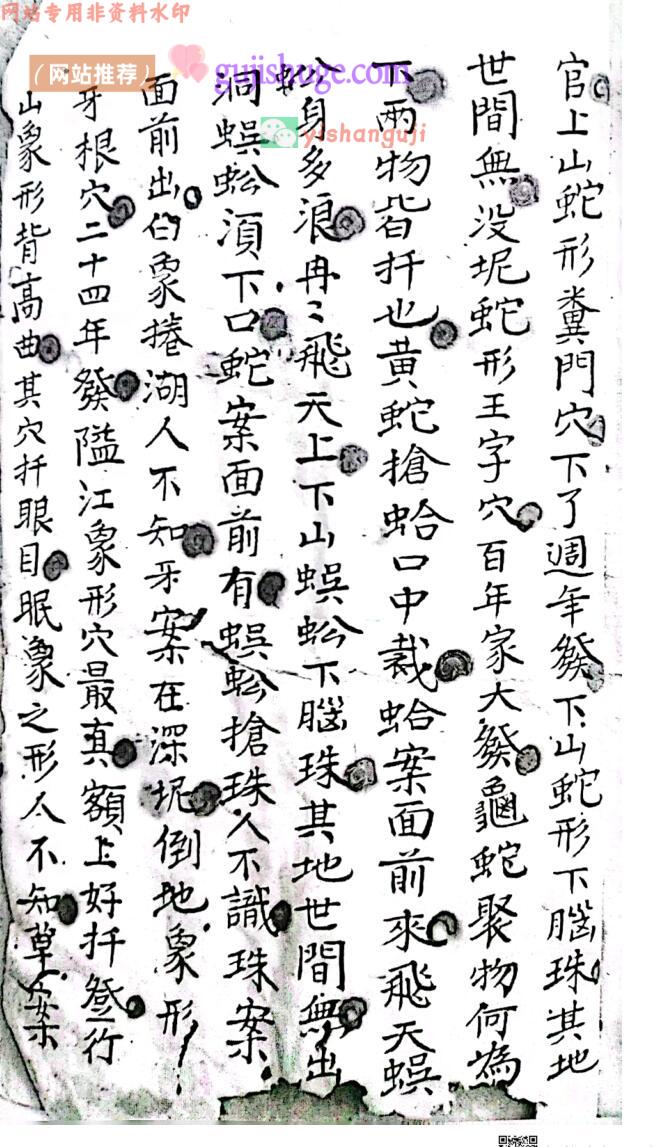 网站专用非资料水印
（网站推荐）
gujishuge.com
yishanguji
官上山蛇形糞門穴下了週年發下山蛇形下腦珠其地
世間無没坭蛇形王字穴百年家大發龜蛇聚物何為
下兩物皆扦也黄蛇搶蛤口中裁蛤案面前來飛天蜈
蚣身多浪冉〻飛天上下山蜈蚣下腦珠其地世間無出
洞蜈蚣湏下口蛇案面前有蜈蚣搶珠人不識珠案
面前出白象捲湖人不知牙案在深坭倒地象形
牙根穴二十四年發隘江象形穴最真額上好扦登行
山象形背高曲其穴扦眼目眠象之形人不知草案